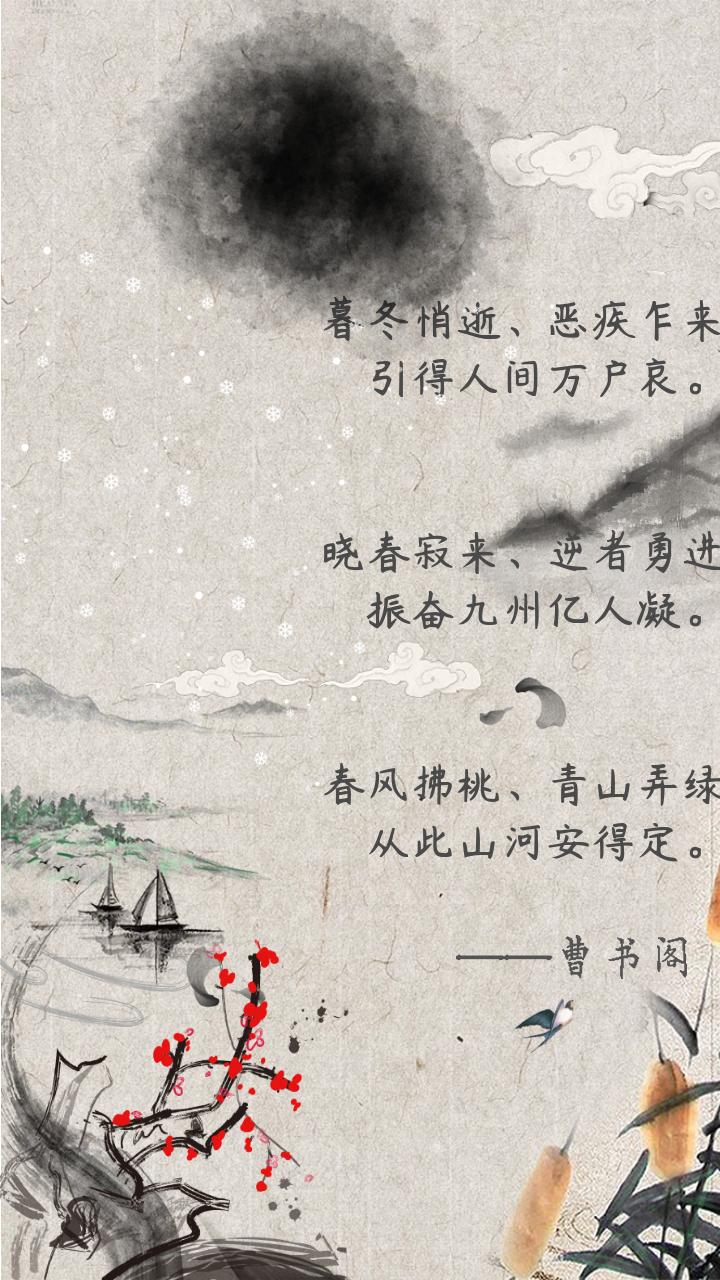 暮冬悄逝、恶疾乍来
引得人间万户哀。
晓春寂来、逆者勇进
振奋九州亿人凝。
春风拂桃、青山弄绿
从此山河安得定。
——曹书阁